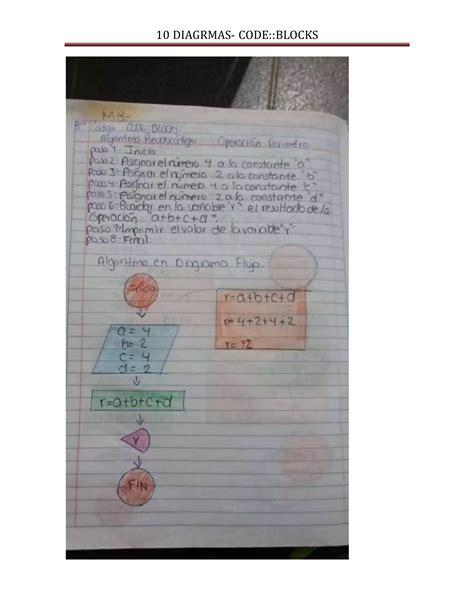 10 DIAGRMAS- CODE::BLOCKS
M3-
Código CODE BLOCKS
Algoritmo Pseudocódigo Operación Perimetro
paso 1- Inicio
paso 2- Asignar el número 4 a la constante "a"
paso 3- Asignar el número 2 a la constante "b"
paso 4- Asignar el número 4 a la constante "c"
paso 5- Asignar el número 2 a la constante "d"
paso 6- Guardar en la variable "r" el resultado de la
Operación "a+b+c+d".
paso 7- Imprimir el valor de la variable "r"
paso 8- Final.
Algoritmo en Diagrama Flujo.
Inicio
a= 4
b= 2
c= 4
d= 2
r=a+b+c+d
r
FIN
r=a+b+c+d
r=4+2+4+2
r= 12